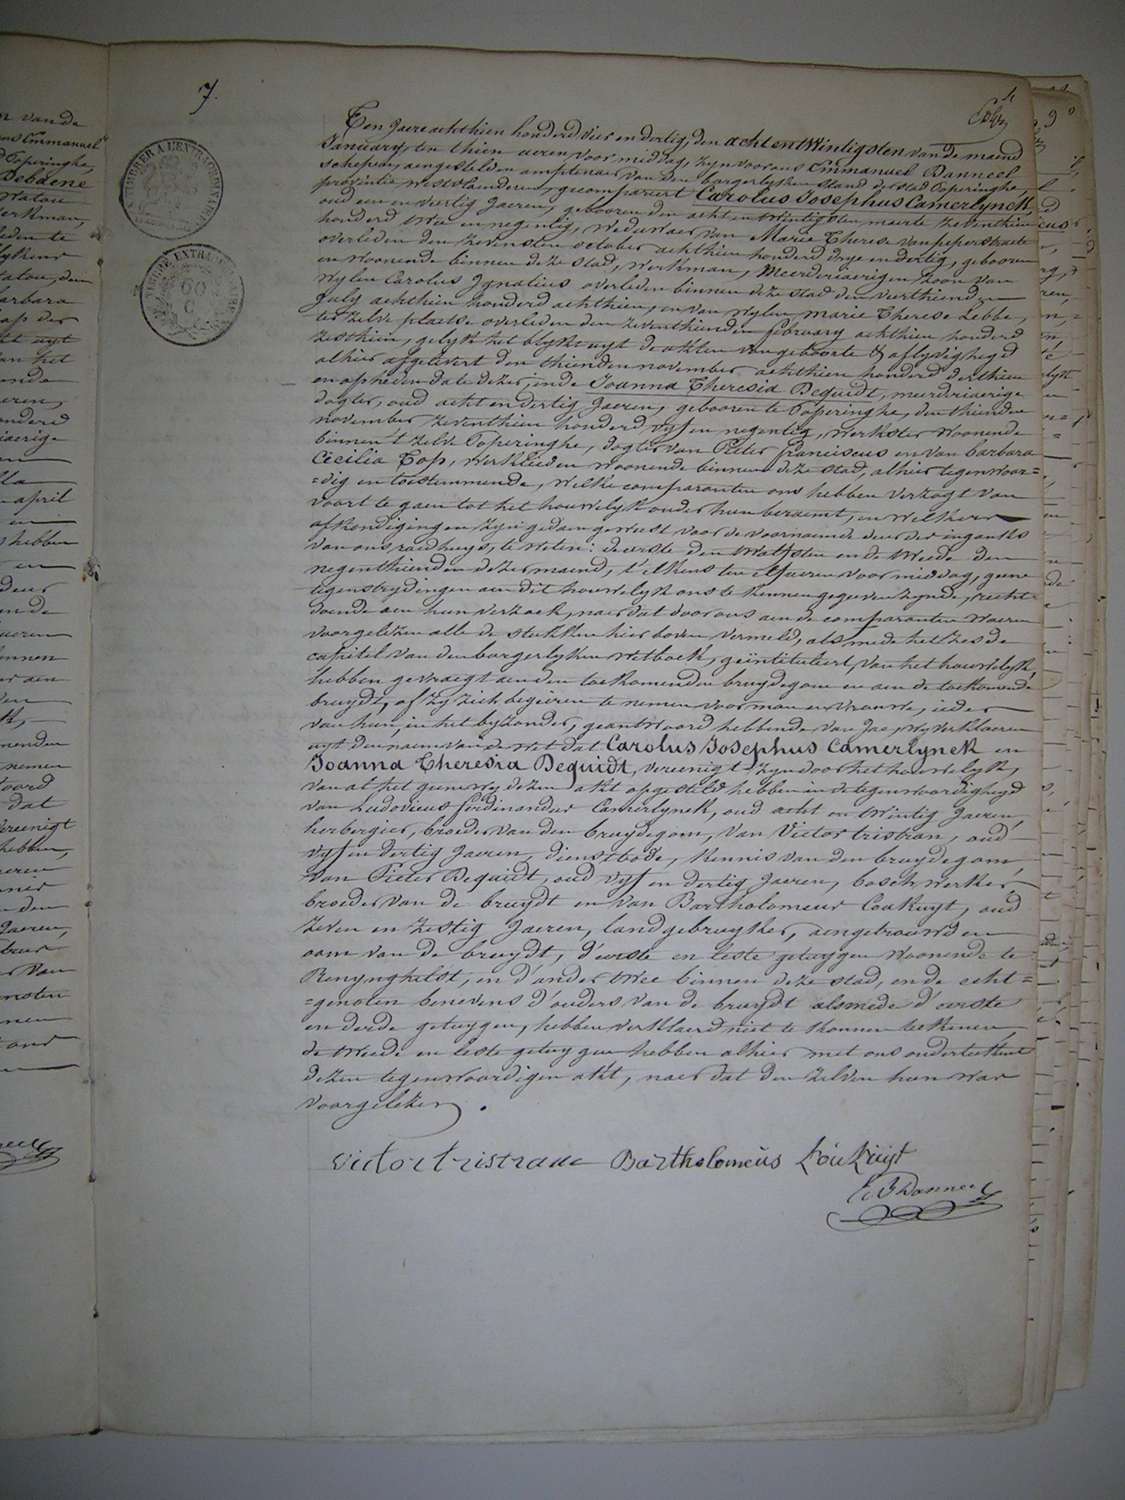 7.
4
Ten Jaere achthien honderd vier en dertig, den acht en twintigsten van de maend
January, ten thien ueren voor middag, zyn voor ons Emmanuel Danneel
schepen, aengestelden amptenaer van den borgerlyken stand der stad Poperinghe,
provintie Westvlanderen, gecompareert Carolus Josephus Camerlynck,
oud een en veertig Jaeren, gebooren den acht en twintigsten maerte zeventhien
honderd twee en negentig, weduwaer van Marie Therese Vanpeperstraete
overleden den zevensten october achthien honderd drye en dertig, gebooren
en woonende binnen deze stad, werkman, Meerderjaerigen zoon van
wylen Carolus Ignatius overleden binnen deze stad den veerthienden
July achthien honderd achthien, en van wylen Marie Therese Lebbe,
ter zelve plaetse overleden den zeventhienden february achthien honderd
zesthien, gelyk het blykt uyt de akten van geboorte & aflyvigheyd
alhier afgelevert den thienden november achthien honderd derthien
en op heden date dezer, ende Joanna Theresia Dequidt, meerderjaerige
dogter, oud acht en dertig Jaeren, gebooren te Poperinghe, den thienden
november zeventhien honderd vyf en negentig, werkster woonende
binnen 't zelve Poperinghe, dogter van Pieter franciscus en van barbara
Cecilia Top, werklieden woonende binnen deze stad, alhier tegenwoor=
=dig en toestemmende, welke comparanten ons hebben verzogt van
voort te gaen tot het houwelyk onder hun beraemt, en welkers
afkondigingen zyn gedaen geweest voor de voornaemde deur der ingank
van ons raedhuys, te weten: de eerste den twalfsten en de tweede den
negenthienden dezer maend, t'elkens ten elf ueren voor middag, geene
tegenstrydingen aen dit houwelyk ons te kennen gegeven zynde, recht
doende aen hun verzoek, naer dat door ons aen de comparanten waeren
voorgelezen alle de stukken hier boven vermeld, als mede het zesde
capitel van den borgerlyken wetboek, geïntituleert, van het houwelyk,
hebben gevraegt aen den toekomenden bruydegom en aen de toekomende
bruydt, of zy zich begieren te nemen voor man en vrouwe, ieder
van hun, in het byzonder, geantwoord hebbende van Jae, wy verklaeren
uyt den naem van de wet dat Carolus Josephus Camerlynck en
Joanna Theresia Dequidt, vereenigt zyn door het houwelyk,
van al het geene wy dezen akt opgesteld hebben in de tegenwoordigheyd
van Ludovicus ferdinandus Camerlynck, oud acht en twintig Jaeren,
herbergier, broeder van den bruydegom, van Victor tristran, oud
vyf en dertig Jaeren, dienstbode, kennis van den bruydegom
van Pieter Dequidt, oud vyf en dertig Jaeren, boschwerker
broeder van de bruydt en van Bartholomeus Coukuyt, oud
zeven en zestig Jaeren, landgebruyker, aengetrouwden
oom van de bruydt, d'eerste en leste getuygen woonende te
Renynghelst, en d'ander twee binnen deze stad, ende echt=
=genoten benevens d'ouders van de bruydt alsmede d'eerste
en derde getuygen, hebben verklaerd niet te konnen teekenen
de tweede en leste getuygen hebben alhier met ons onderteekent
dezen tegenwoordigen akt, naer dat den zelven hun was
voorgelezen.
victor tristrane Bartholomeüs Koukuyt
E. Danneel